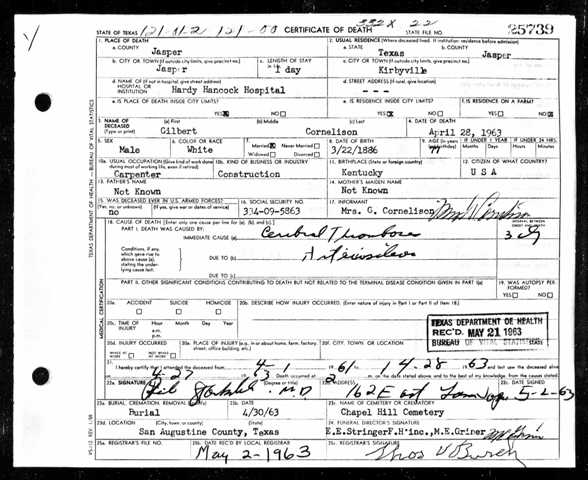 STATE OF TEXAS
CERTIFICATE OF DEATH
STATE FILE NO.
25739
1. PLACE OF DEATH
a. COUNTY
Jasper
2. USUAL RESIDENCE (Where deceased lived. If institution: residence before admission)
a. STATE
Texas
b. COUNTY
Jasper
b. CITY OR TOWN (If outside city limits, give precinct no.)
Jasper
c. LENGTH OF STAY
1 day
c. CITY OR TOWN (If outside city limits, give precinct no.)
Kirbyville
d. NAME OF (If not in hospital, give street address)
HOSPITAL OR
INSTITUTION
Hardy Hancock Hospital
d. STREET ADDRESS (If rural, give location)
- - -
e. IS PLACE OF DEATH INSIDE CITY LIMITS?
YES NO
e. IS RESIDENCE INSIDE CITY LIMITS?
YES NO
f. IS RESIDENCE ON A FARM?
YES NO
3. NAME OF
DECEASED
(Type or print)
(a) First
Gilbert
(b) Middle
(c) Last
Cornelison
4. DATE OF DEATH
April 28, 1963
5. SEX
Male
6. COLOR OR RACE
White
7. Married Never Married
Widowed Divorced
8. DATE OF BIRTH
3/22/1886
9. AGE
77
IF UNDER 1 YEAR
Months Days
IF UNDER 24 HRS.
Hours Min.
10a. USUAL OCCUPATION (Give kind of work done
during most of working life, even if retired)
Carpenter
10b. KIND OF BUSINESS OR INDUSTRY
Construction
11. BIRTHPLACE (State or foreign country)
Kentucky
12. CITIZEN OF WHAT COUNTRY?
U S A
13. FATHER'S NAME
Not Known
14. MOTHER'S MAIDEN NAME
Not Known
15. WAS DECEASED EVER IN U.S. ARMED FORCES?
(Yes, no, or unknown) (If yes, give war or dates of service)
no
16. SOCIAL SECURITY NO.
304-09-5863
17. INFORMANT
Mrs. G. Cornelison
18. CAUSE OF DEATH [Enter only one cause per line for (a), (b), and (c).]
PART I. DEATH WAS CAUSED BY:
IMMEDIATE CAUSE (a)
Cerebral Thrombosis
INTERVAL BETWEEN
ONSET AND DEATH
Conditions, if any,
which gave rise to
above cause (a),
stating the under-
lying cause last.
DUE TO (b)
DUE TO (c)
PART II. OTHER SIGNIFICANT CONDITIONS CONTRIBUTING TO DEATH BUT NOT RELATED TO THE TERMINAL DISEASE CONDITION GIVEN IN PART I(a)
19. WAS AUTOPSY PERFORMED?
YES NO
20a. ACCIDENT SUICIDE HOMICIDE
20b. DESCRIBE HOW INJURY OCCURRED. (Enter nature of injury in Part I or Part II of item 18.)
20c. TIME OF
INJURY
Hour Month Day Year
a.m.
p.m.
TEXAS DEPARTMENT OF HEALTH
REC'D. MAY 21 1963
BUREAU OF VITAL STATISTICS
20d. INJURY OCCURRED
WHILE AT WORK NOT WHILE AT WORK
20e. PLACE OF INJURY (e.g., in or about home, farm, factory,
street, office building, etc.)
20f. CITY, TOWN, OR LOCATION
COUNTY STATE
21. I hereby certify that I attended the deceased from 4-1 1961 4-28 1963
4-27 63 Death occurred at
22a. SIGNATURE
(Degree or title)
M.D
22b. ADDRESS
22c. DATE SIGNED
5-2-63
23a. BURIAL, CREMATION, REMOVAL (Specify)
Burial
23b. DATE
4/30/63
23c. NAME OF CEMETERY OR CREMATORY
Chapel Hill Cemetery
23d. LOCATION (City, town, or county) (State)
San Augustine County, Texas
24. FUNERAL DIRECTOR'S SIGNATURE
E.E.StringerF.H'inc.,M.E.Griner
25a. REGISTRAR'S FILE NO.
25b. DATE REC'D BY LOCAL REGISTRAR
May 2-1963
25c. REGISTRAR'S SIGNATURE
TEXAS DEPARTMENT OF HEALTH—BUREAU OF VITAL STATISTICS
MEDICAL CERTIFICATION